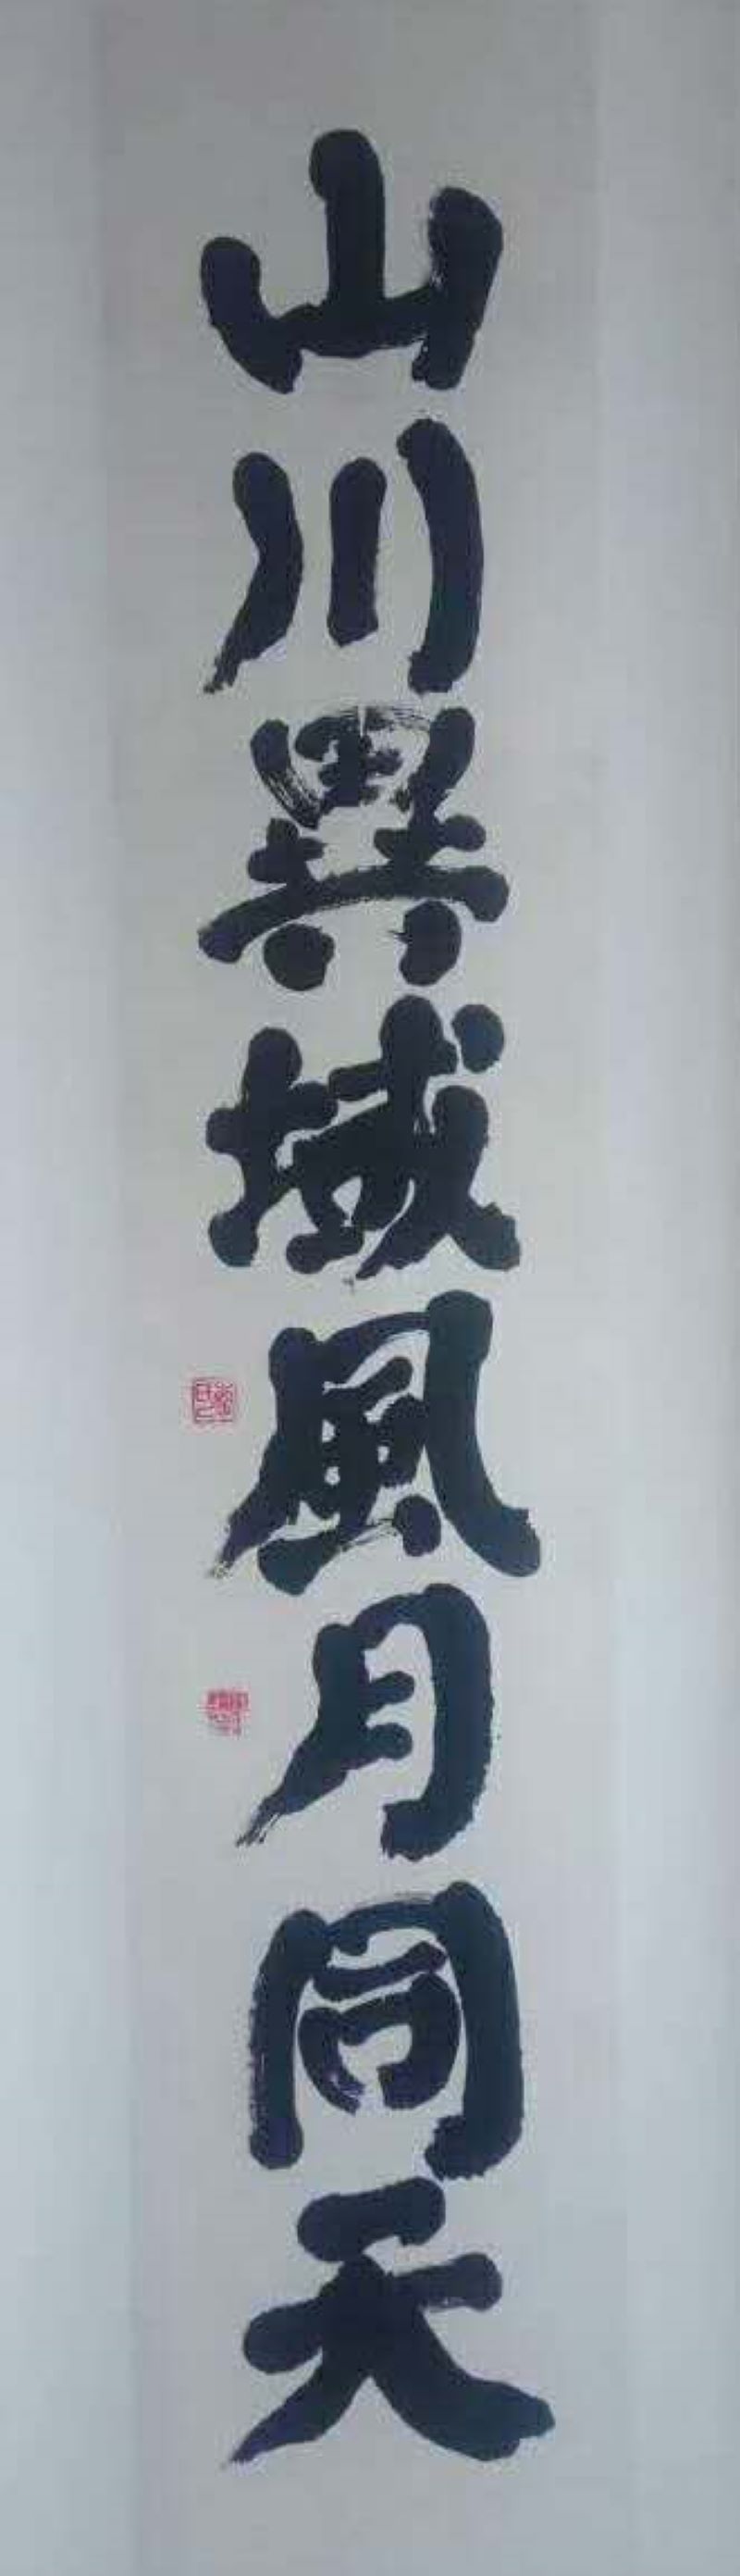 山川異域風月同天